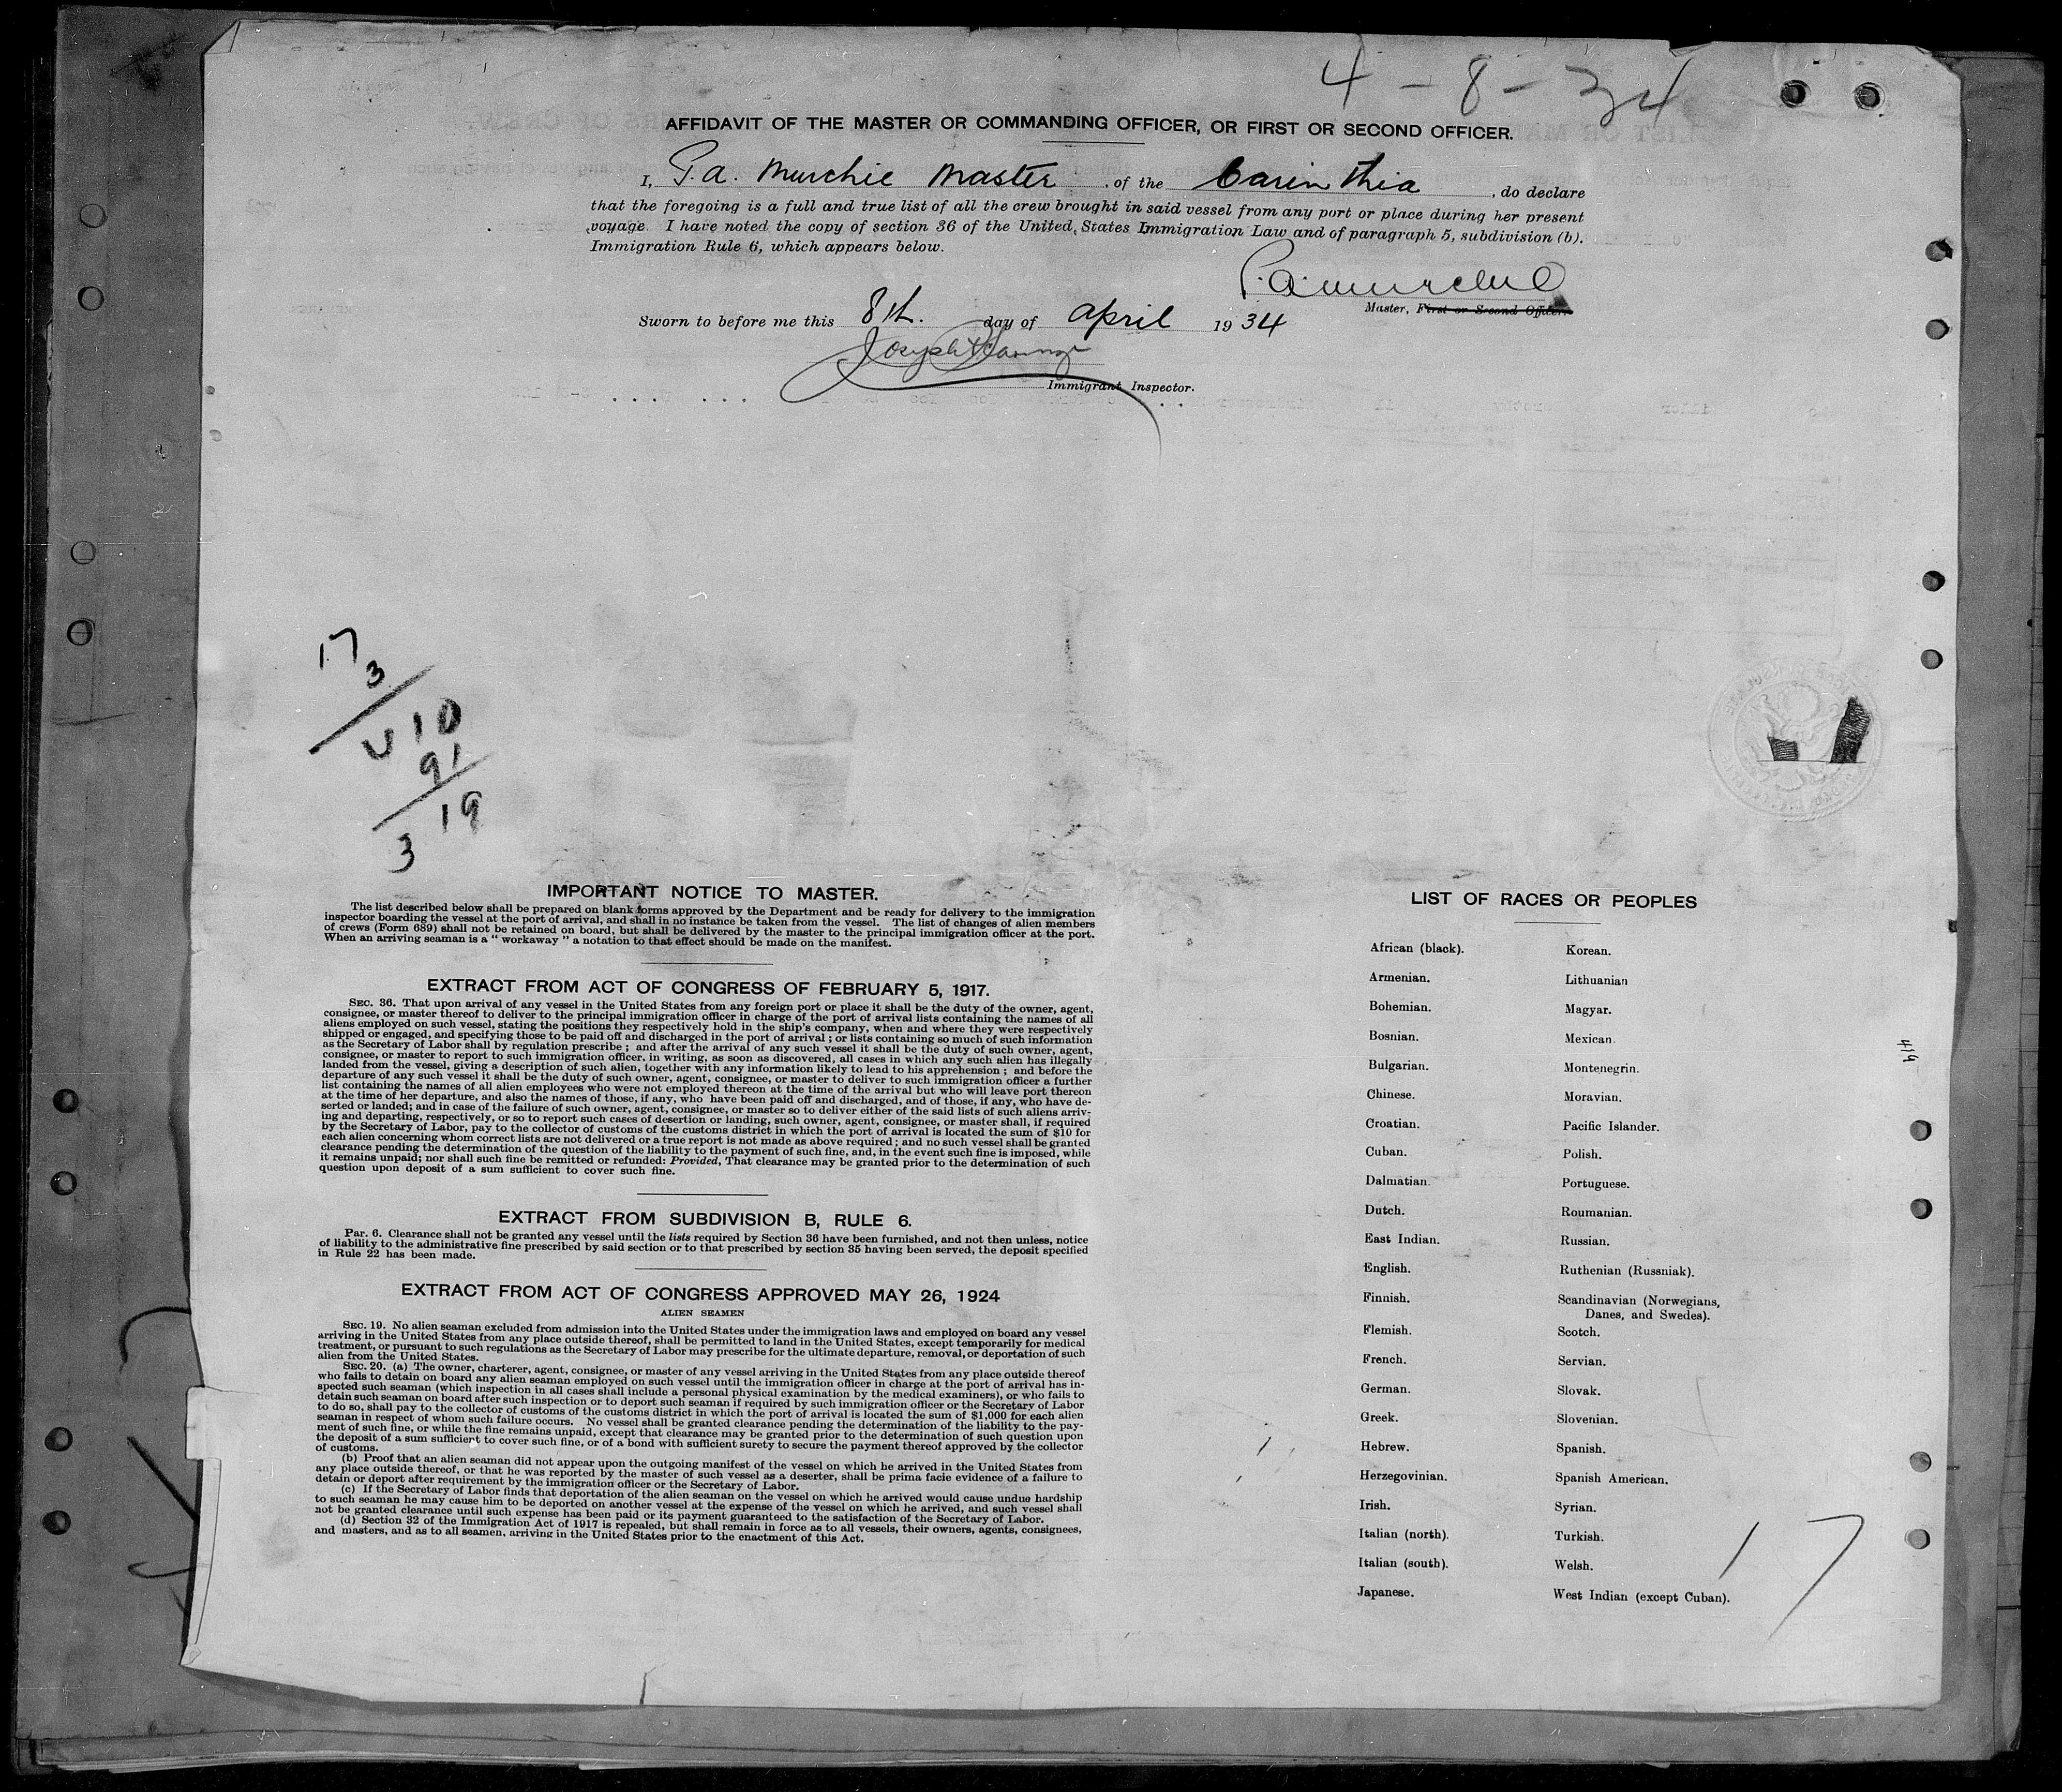 4 - 8 - 34
AFFIDAVIT OF THE MASTER OR COMMANDING OFFICER, OR FIRST OR SECOND OFFICER.
I, P.A. Murchie Master, of the Carinthia, do declare
that the foregoing is a full and true list of all the crew brought in said vessel from any port or place during her present
voyage. I have noted the copy of section 36 of the United States Immigration Law and of paragraph 5, subdivision (b).
Immigration Rule 6, which appears below.
P.A. Murchie
Master, First or Second Officer.
Sworn to before me this 8th. day of April 1934
Joseph
Immigrant Inspector.
17
3
10
91
19
3
IMPORTANT NOTICE TO MASTER.
The list described below shall be prepared on blank forms approved by the Department and be ready for delivery to the immigration
inspector boarding the vessel at the port of arrival, and shall in no instance be taken from the vessel. The list of changes of alien members
of crews (Form 689) shall not be retained on board, but shall be delivered by the master to the principal immigration officer at the port.
When an arriving seaman is a " workaway " a notation to that effect should be made on the manifest.
EXTRACT FROM ACT OF CONGRESS OF FEBRUARY 5, 1917.
SEC. 36. That upon arrival of any vessel in the United States from any foreign port or place it shall be the duty of the owner, agent,
consignee, or master thereof to deliver to the principal immigration officer in charge of the port of arrival lists containing the names of all
aliens employed on such vessel, stating the positions they respectively hold in the ship's company, when and where they were respectively
shipped or engaged, and specifying those to be paid off and discharged in the port of arrival ; or lists containing so much of such information
as the Secretary of Labor shall by regulation prescribe ; and after the arrival of any such vessel it shall be the duty of such owner, agent,
consignee, or master to report to such immigration officer. in writing, as soon as discovered, all cases in which any such alien has illegally
landed from the vessel, giving a description of such alien, together with any information likely to lead to his apprehension ; and before the
departure of any such vessel it shall be the duty of such owner, agent, consignee, or master to deliver to such immigration officer a further
list containing the names of all alien employees who were not employed thereon at the time of the arrival but who will leave port thereon
at the time of her departure, and also the names of those, if any, who have been paid off and discharged, and of those, if any, who have de-
serted or landed; and in case of the failure of such owner, agent, consignee, or master so to deliver either of the said lists of such aliens arriv-
ing and departing, respectively, or so to report such cases of desertion or landing, such owner, agent, consignee, or master shall, if required
by the Secretary of Labor, pay to the collector of customs of the customs district in which the port of arrival is located the sum of $10 for
each alien concerning whom correct lists are not delivered or a true report is not made as above required ; and no such vessel shall be granted
clearance pending the determination of the question of the liability to the payment of such fine, and, in the event such fine is imposed, while
it remains unpaid; nor shall such fine be remitted or refunded: Provided, That clearance may be granted prior to the determination of such
question upon deposit of a sum sufficient to cover such fine.
EXTRACT FROM SUBDIVISION B, RULE 6.
Par. 6. Clearance shall not be granted any vessel until the lists required by Section 36 have been furnished, and not then unless, notice
of liability to the administrative fine prescribed by said section or to that prescribed by section 35 having been served, the deposit specified
in Rule 22 has been made.
EXTRACT FROM ACT OF CONGRESS APPROVED MAY 26, 1924
ALIEN SEAMEN
SEC. 19. No alien seaman excluded from admission into the United States under the immigration laws and employed on board any vessel
arriving in the United States from any place outside thereof, shall be permitted to land in the United States, except temporarily for medical
treatment, or pursuant to such regulations as the Secretary of Labor may prescribe for the ultimate departure, removal, or deportation of such
alien from the United States.
SEC. 20. (a) The owner, charterer, agent, consignee, or master of any vessel arriving in the United States from any place outside thereof
who fails to detain on board any alien seaman employed on such vessel until the immigration officer in charge at the port of arrival has in-
spected such seaman (which inspection in all cases shall include a personal physical examination by the medical examiners), or who fails to
detain such seaman on board after such inspection or to deport such seaman if required by such immigration officer or the Secretary of Labor
to do so, shall pay to the collector of customs of the customs district in which the port of arrival is located the sum of $1,000 for each alien
seaman in respect of whom such failure occurs. No vessel shall be granted clearance pending the determination of the liability to the pay-
ment of such fine, or while the fine remains unpaid, except that clearance may be granted prior to the determination of such question upon
the deposit of a sum sufficient to cover such fine, or of a bond with sufficient surety to secure the payment thereof approved by the collector
of customs.
(b) Proof that an alien seaman did not appear upon the outgoing manifest of the vessel on which he arrived in the United States from
any place outside thereof, or that he was reported by the master of such vessel as a deserter, shall be prima facie evidence of a failure to
detain or deport after requirement by the immigration officer or the Secretary of Labor.
(c) If the Secretary of Labor finds that deportation of the alien seaman on the vessel on which he arrived would cause undue hardship
to such seaman he may cause him to be deported on another vessel at the expense of the vessel on which he arrived, and such vessel shall
not be granted clearance until such expense has been paid or its payment guaranteed to the satisfaction of the Secretary of Labor.
(d) Section 32 of the Immigration Act of 1917 is repealed, but shall remain in force as to all vessels, their owners, agents, consignees,
and masters, and as to all seamen, arriving in the United States prior to the enactment of this Act.
LIST OF RACES OR PEOPLES
African (black). Korean.
Armenian. Lithuanian
Bohemian. Magyar.
Bosnian. Mexican.
Bulgarian. Montenegrin.
Chinese. Moravian.
Croatian. Pacific Islander.
Cuban. Polish.
Dalmatian. Portuguese.
Dutch. Roumanian.
East Indian. Russian.
English. Ruthenian (Russniak).
Finnish. Scandinavian (Norwegians,
Danes, and Swedes).
Flemish. Scotch.
French. Servian.
German. Slovak.
Greek. Slovenian.
Hebrew. Spanish.
Herzegovinian. Spanish American.
Irish. Syrian.
Italian (north). Turkish.
Italian (south). Welsh.
Japanese. West Indian (except Cuban).
17
419